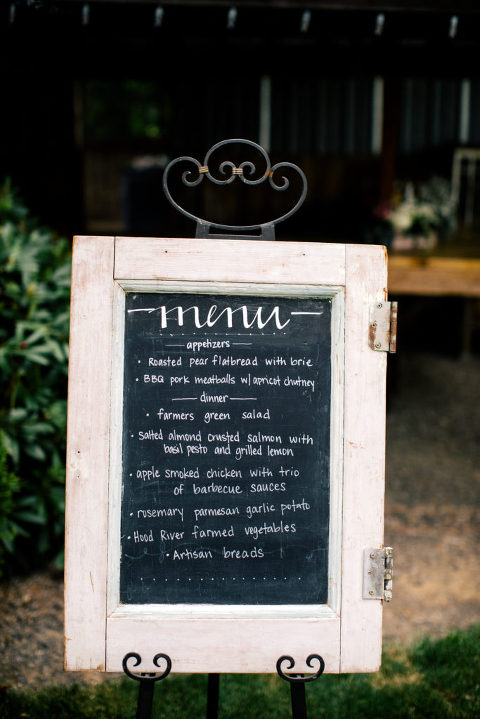 menu
appetizers
• Roasted pear flatbread with brie
• BBQ pork meatballs w/ apricot chutney
dinner
• farmers green salad
• salted almond crusted salmon with
basil pesto and grilled lemon
• apple smoked chicken with trio
of barbecue sauces
• rosemary parmesan garlic potato
• Hood River farmed vegetables
• Artisan breads